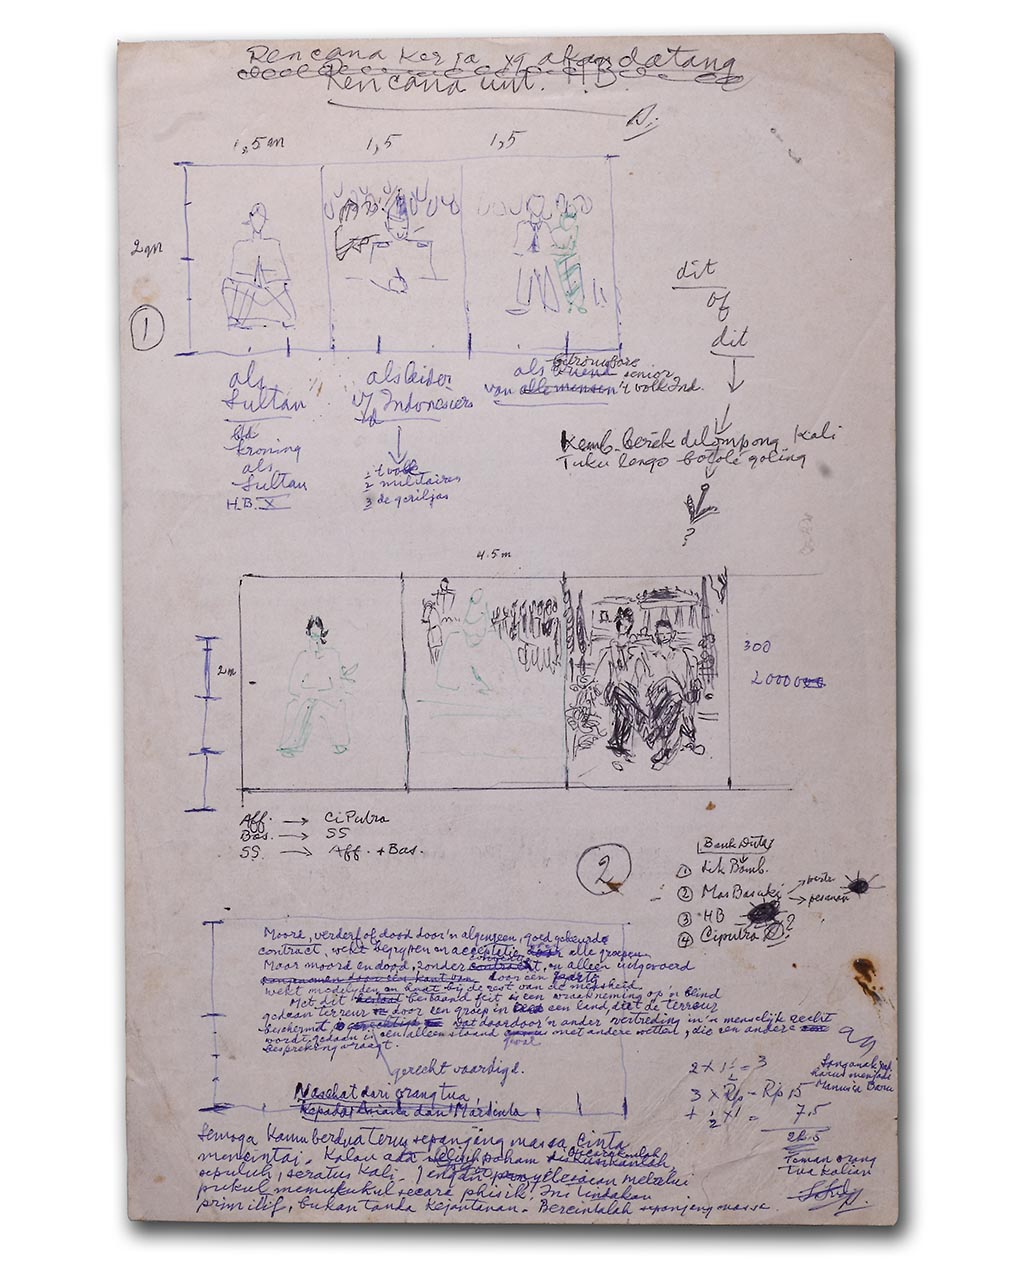 Rencana Kerja yg akan datang
Rencana unt. H.B.
1,5 m 1,5 1,5
2 m
1
dit
of
dit
als
Sultan
bld
kroning
als
Sultan
H.B. X
als leider
v/ Indonesiers
1 't volk
2 militaires
3 de geriljas
als vriend senior
van alle mensen 't volk Ind.
Kemb. Gerek dilompong kali
Tuku lengo botole goling
?
4.5 m
2 m
300
20000
Aff. → CiPutra
Bas. → SS
SS. → Aff. + Bas.
2
Bank Duta
1 dik Bamb.
2 Mas Basuki
→ pesanan
3 HB
4 Ciputra ?
Moord, verderf of dood door 'n algemeen, goed gekeurde
contract, wekt begrypen en acceptatie door alle groepen
Maar moord en dood, zonder contract, en alleen uitgevoerd
door één partij
wekt medelyden en haat bij de rest van de mensheid.
Met dit bestaand feit is een wraakneming op 'n blind
gedaan terreur door een groep in een land, dat de terreur
beschermt, dat daardoor 'n ander vertreding in 'n menselijk recht
wordt gedaan is een alleenstaand geval met andere wetten, die een andere
bespreking vraagt.
gerecht vaardigd.
2 x 1½ = 3
3 x Rp - Rp 15
+ ½ x 1 = 7,5
22.5
harus menjadi
Manusia Baru
Nasehat dari orang tua
Kepada Ariana dan Mardinta
Semoga Kamu berdua terus sepanjang massa Cinta
mencintai. Kalau ada paham diskusikanlah
sepuluh, seratus kali. Jangan penyelesaian melalui
pukul memukukul secara phisik. Ini tindakan
primitif, bukan tanda Kejantanan. Bercintalah sepanjang massa.
Teman orang
tua kalian